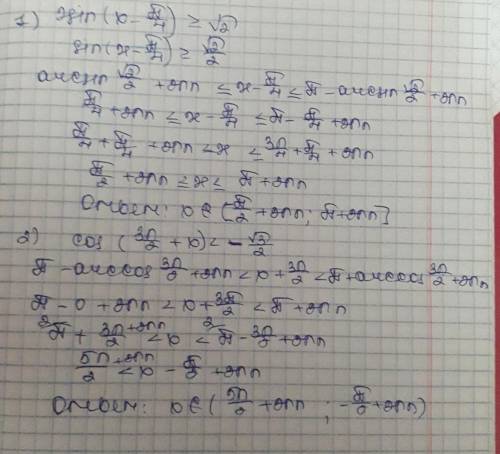 1) 2sin(x - π/4) ≥ √2
sin(x - π/4) ≥ √2/2
arcsin √2/2 + 2πn ≤ x - π/4 ≤ π - arcsin √2/2 + 2πn
π/4 + 2πn ≤ x - π/4 ≤ π - π/4 + 2πn
π/4 + π/4 + 2πn ≤ x ≤ 3π/4 + π/4 + 2πn
π/2 + 2πn ≤ x ≤ π + 2πn
Ответ: x ∈ [π/2 + 2πn; π + 2πn]
2) cos(3π/2 + x) < -√3/2
π - arccos 3π/2 + 2πn < x + 3π/2 < π + arccos 3π/2 + 2πn
π - 0 + 2πn < x + 3π/2 < π + 2πn
π + 3π/2 + 2πn < x < π - 3π/2 + 2πn
5π/2 + 2πn < x - π/2 + 2πn
Ответ: x ∈ (5π/2 + 2πn; -π/2 + 2πn)